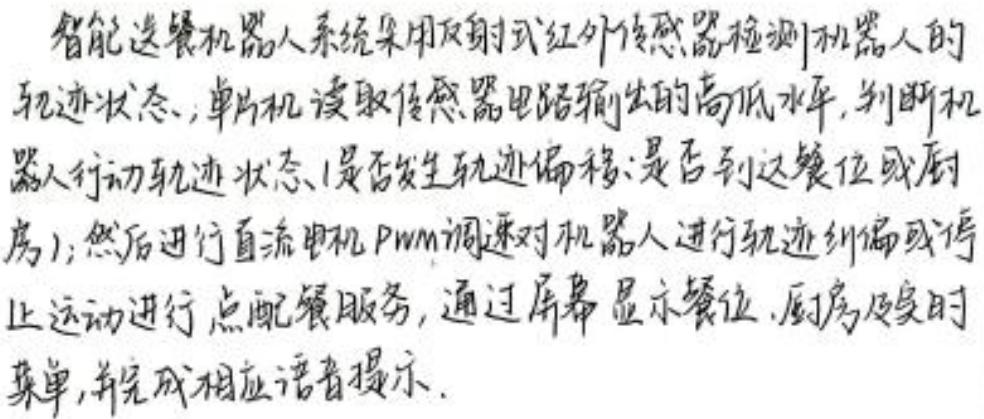 智能送餐机器人系统采用反射式红外传感器检测机器人的
轨迹状态,单片机读取传感器电路输出的高低水平,判断机
器人行动轨迹状态(是否发生轨迹偏移;是否到达餐位或厨
房);然后进行直流电机PWM调速对机器人进行轨迹纠偏或停
止运动进行点配餐服务,通过屏幕显示餐位、厨房及实时
菜单,并完成相应语音提示.